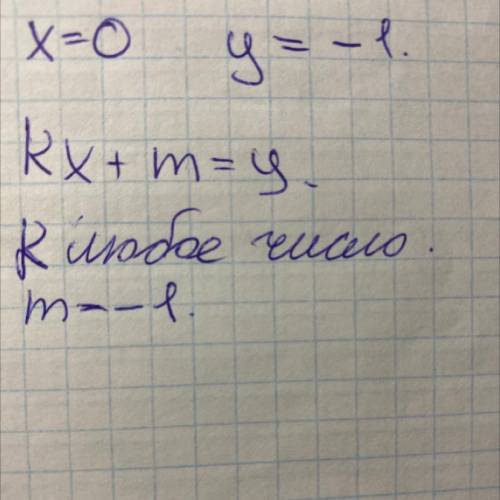 x=0 y=-1.
kx+m=y.
k любое число.
m=-1.